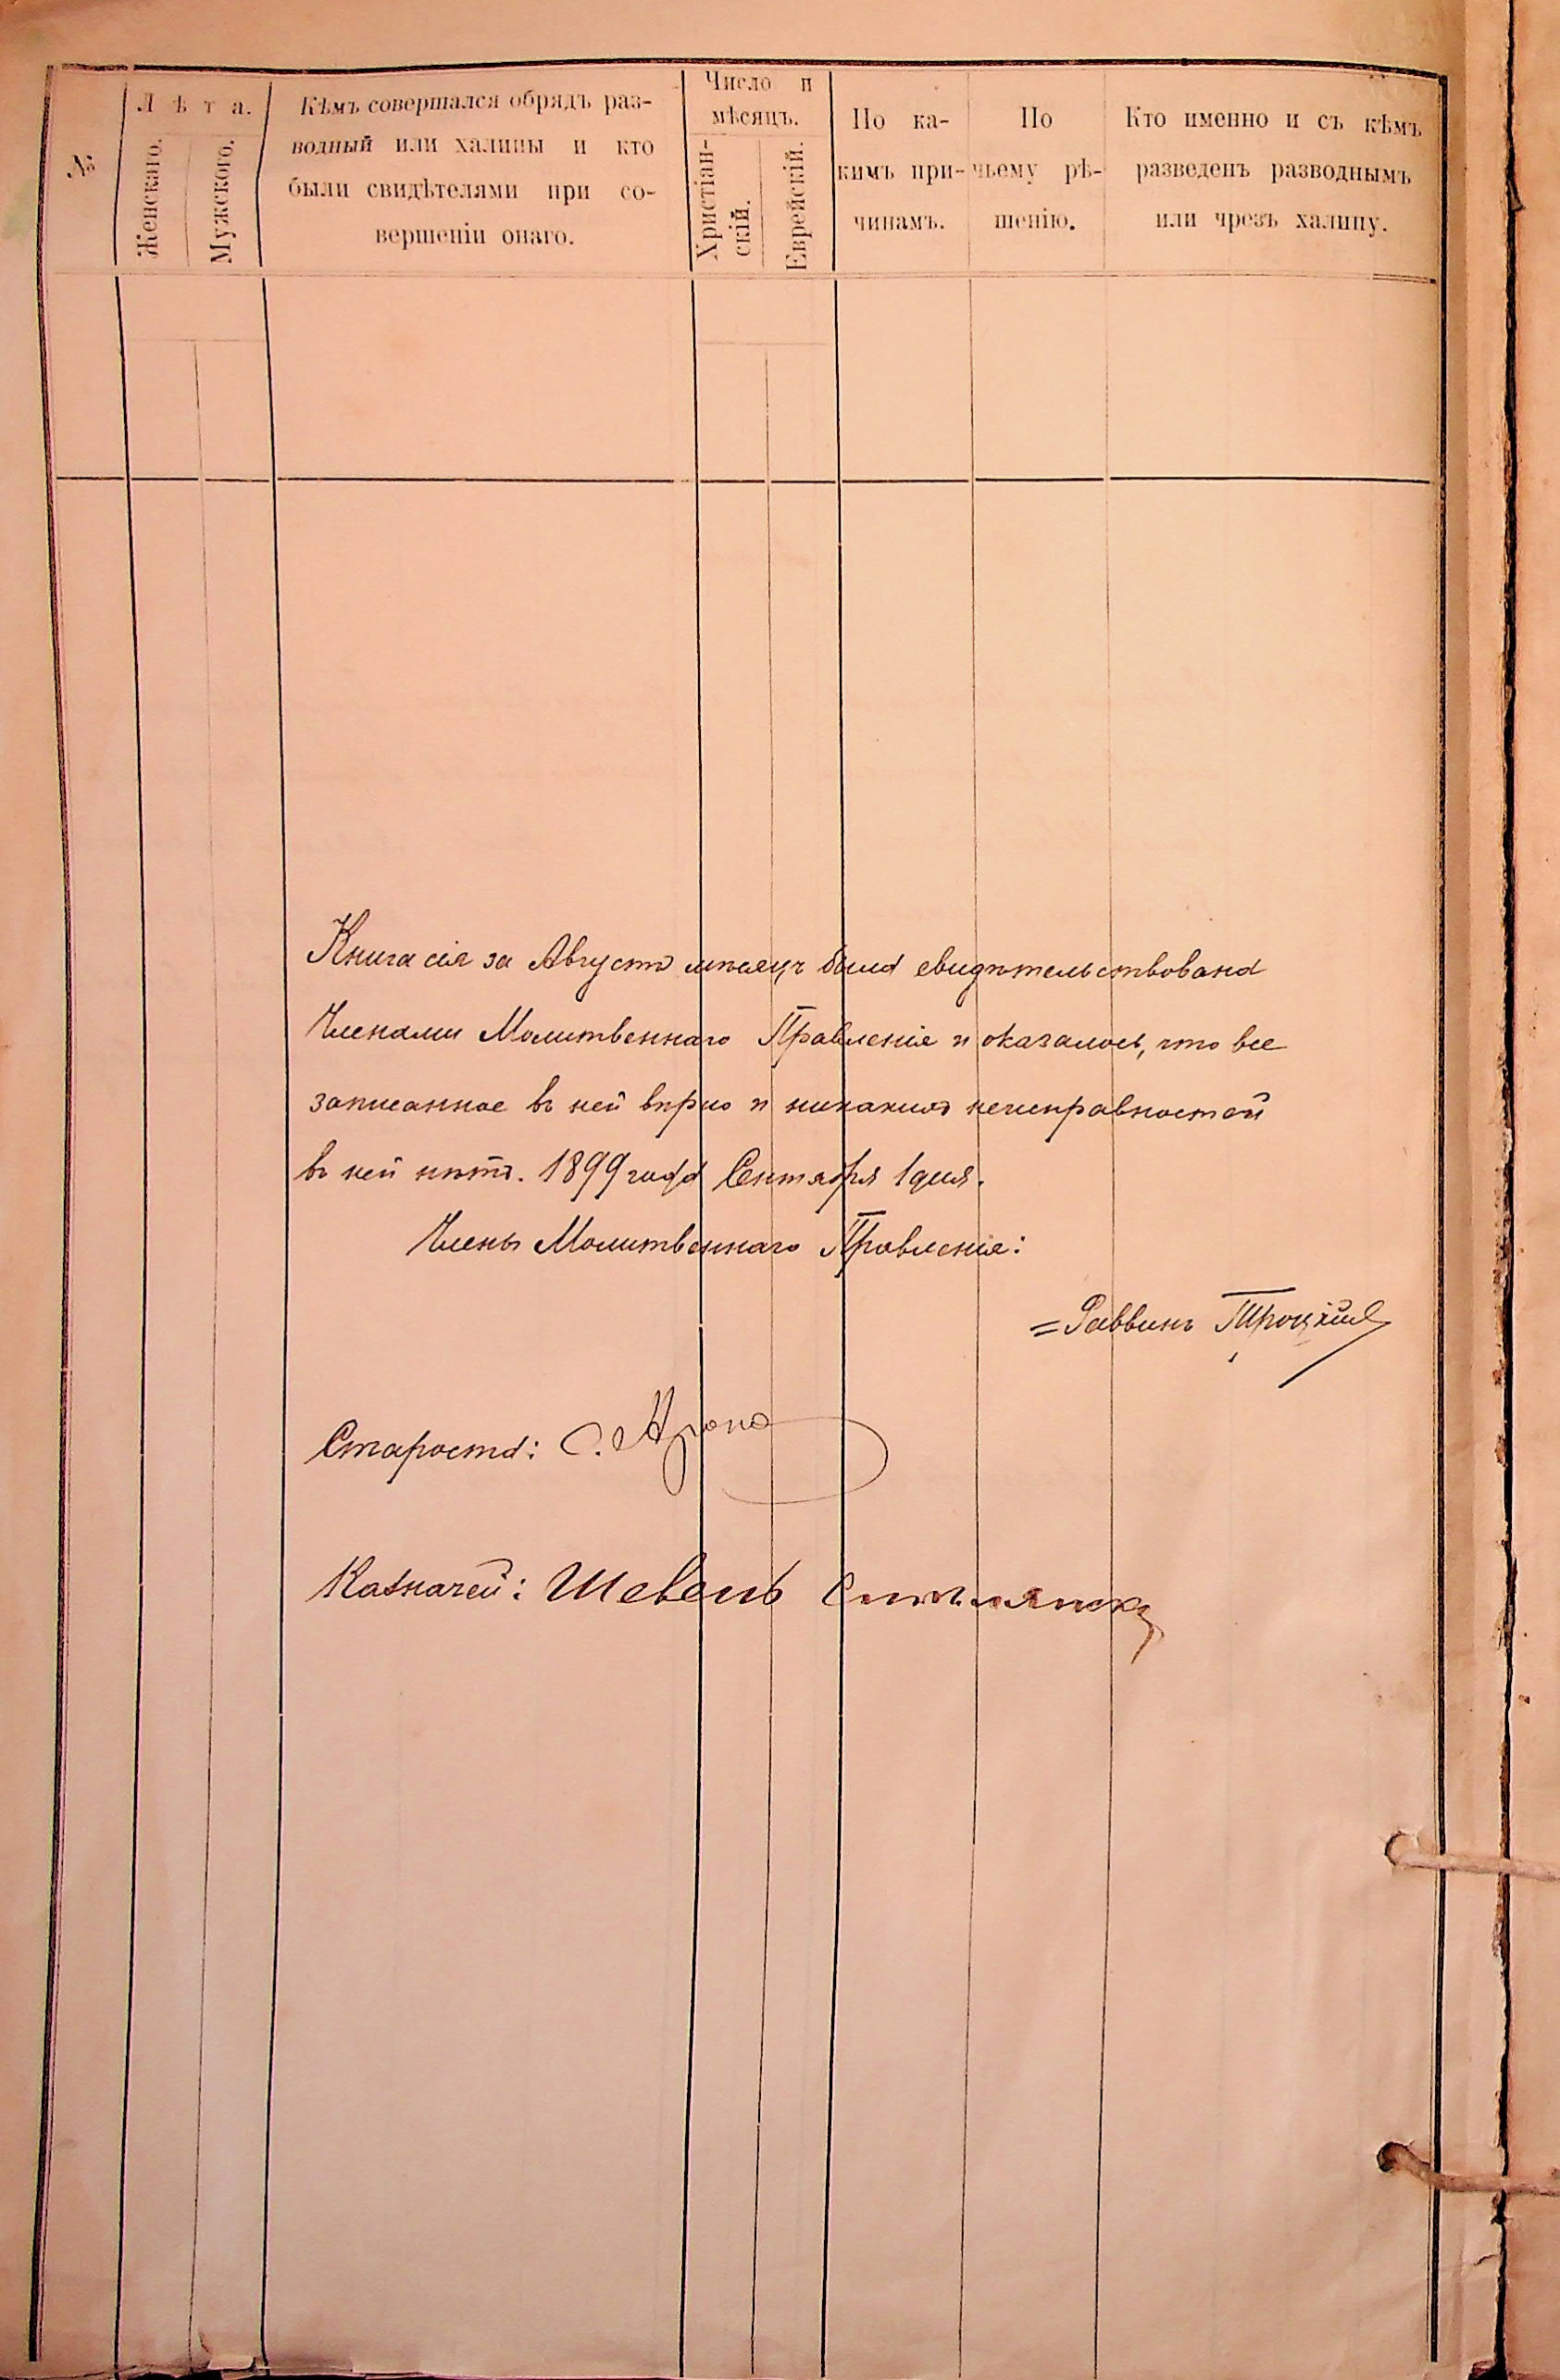 №
Лѣта.
Женскаго.
Мужского.
Кѣмъ совершался обрядъ раз-
водный или халицы и кто
были свидѣтелями при со-
вершеніи онаго.
Число и
мѣсяцъ.
Христіан-
скій.
Еврейскій.
По ка-
кимъ при-
чинамъ.
По
чьему рѣ-
шенію.
Кто именно и съ кѣмъ
разведенъ разводнымъ
или чрезъ халицу.
Книга сія за Августъ мѣсяцъ была свидѣтельствована
Членами Молитвеннаго Правленія и оказалось, что все
записанное въ ней вѣрно и никакихъ неисправностей
въ ней нѣтъ. 1899 года Сентября 1 дня.
Члены Молитвеннаго Правленія:
=Раввинъ Троцкій
Староста: С.
Казначей: Шевель